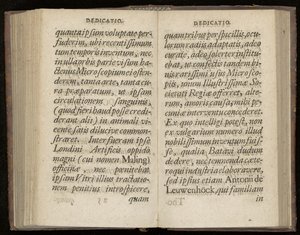 DEDICATIO.
quanta ipsum voluptate per-
fuderim, ubi recentissimum
tum temporis inventum, nec
in ulla orbis parte visum ha-
ctenus Microscopium ei osten-
derem, tanta arte, tanta cu-
ra præparatum, ut ipsam
circulationem Sanguinis,
(quod fieri haud posse cre-
derant alii) in animali vi-
vente satis dilucide common-
straret. Interfueram ipse
Londini Artificis oppidò
magni (cui nomen Musing)
officinæ, nec pœnitebat
ipsam Vitri illius tractatio-
nem penitius introspicere,
quam
DEDICATIO.
quantribus perspicillis, ocu-
lorum radiis adaptatis, adeo
curatè, adeò solerter institue-
bat, ut confecto tandem bi-
nis rarissimi usûs Microsco-
piis, unum Illustrissimæ So-
cietati Regiæ offerret, alte-
rum, amoris causa, mibi pre-
cium ignoranti concederet.
Ex quo intelligi potest, non
ex vulgarium numero illud
nobilissimum inventum fuis-
se, qualia Batavi dudum
dedere; nec temnenda cæte-
roqui industria elaboravere,
sed ipsius etiam Antonii de
Leuwenhöck, qui familiam
in